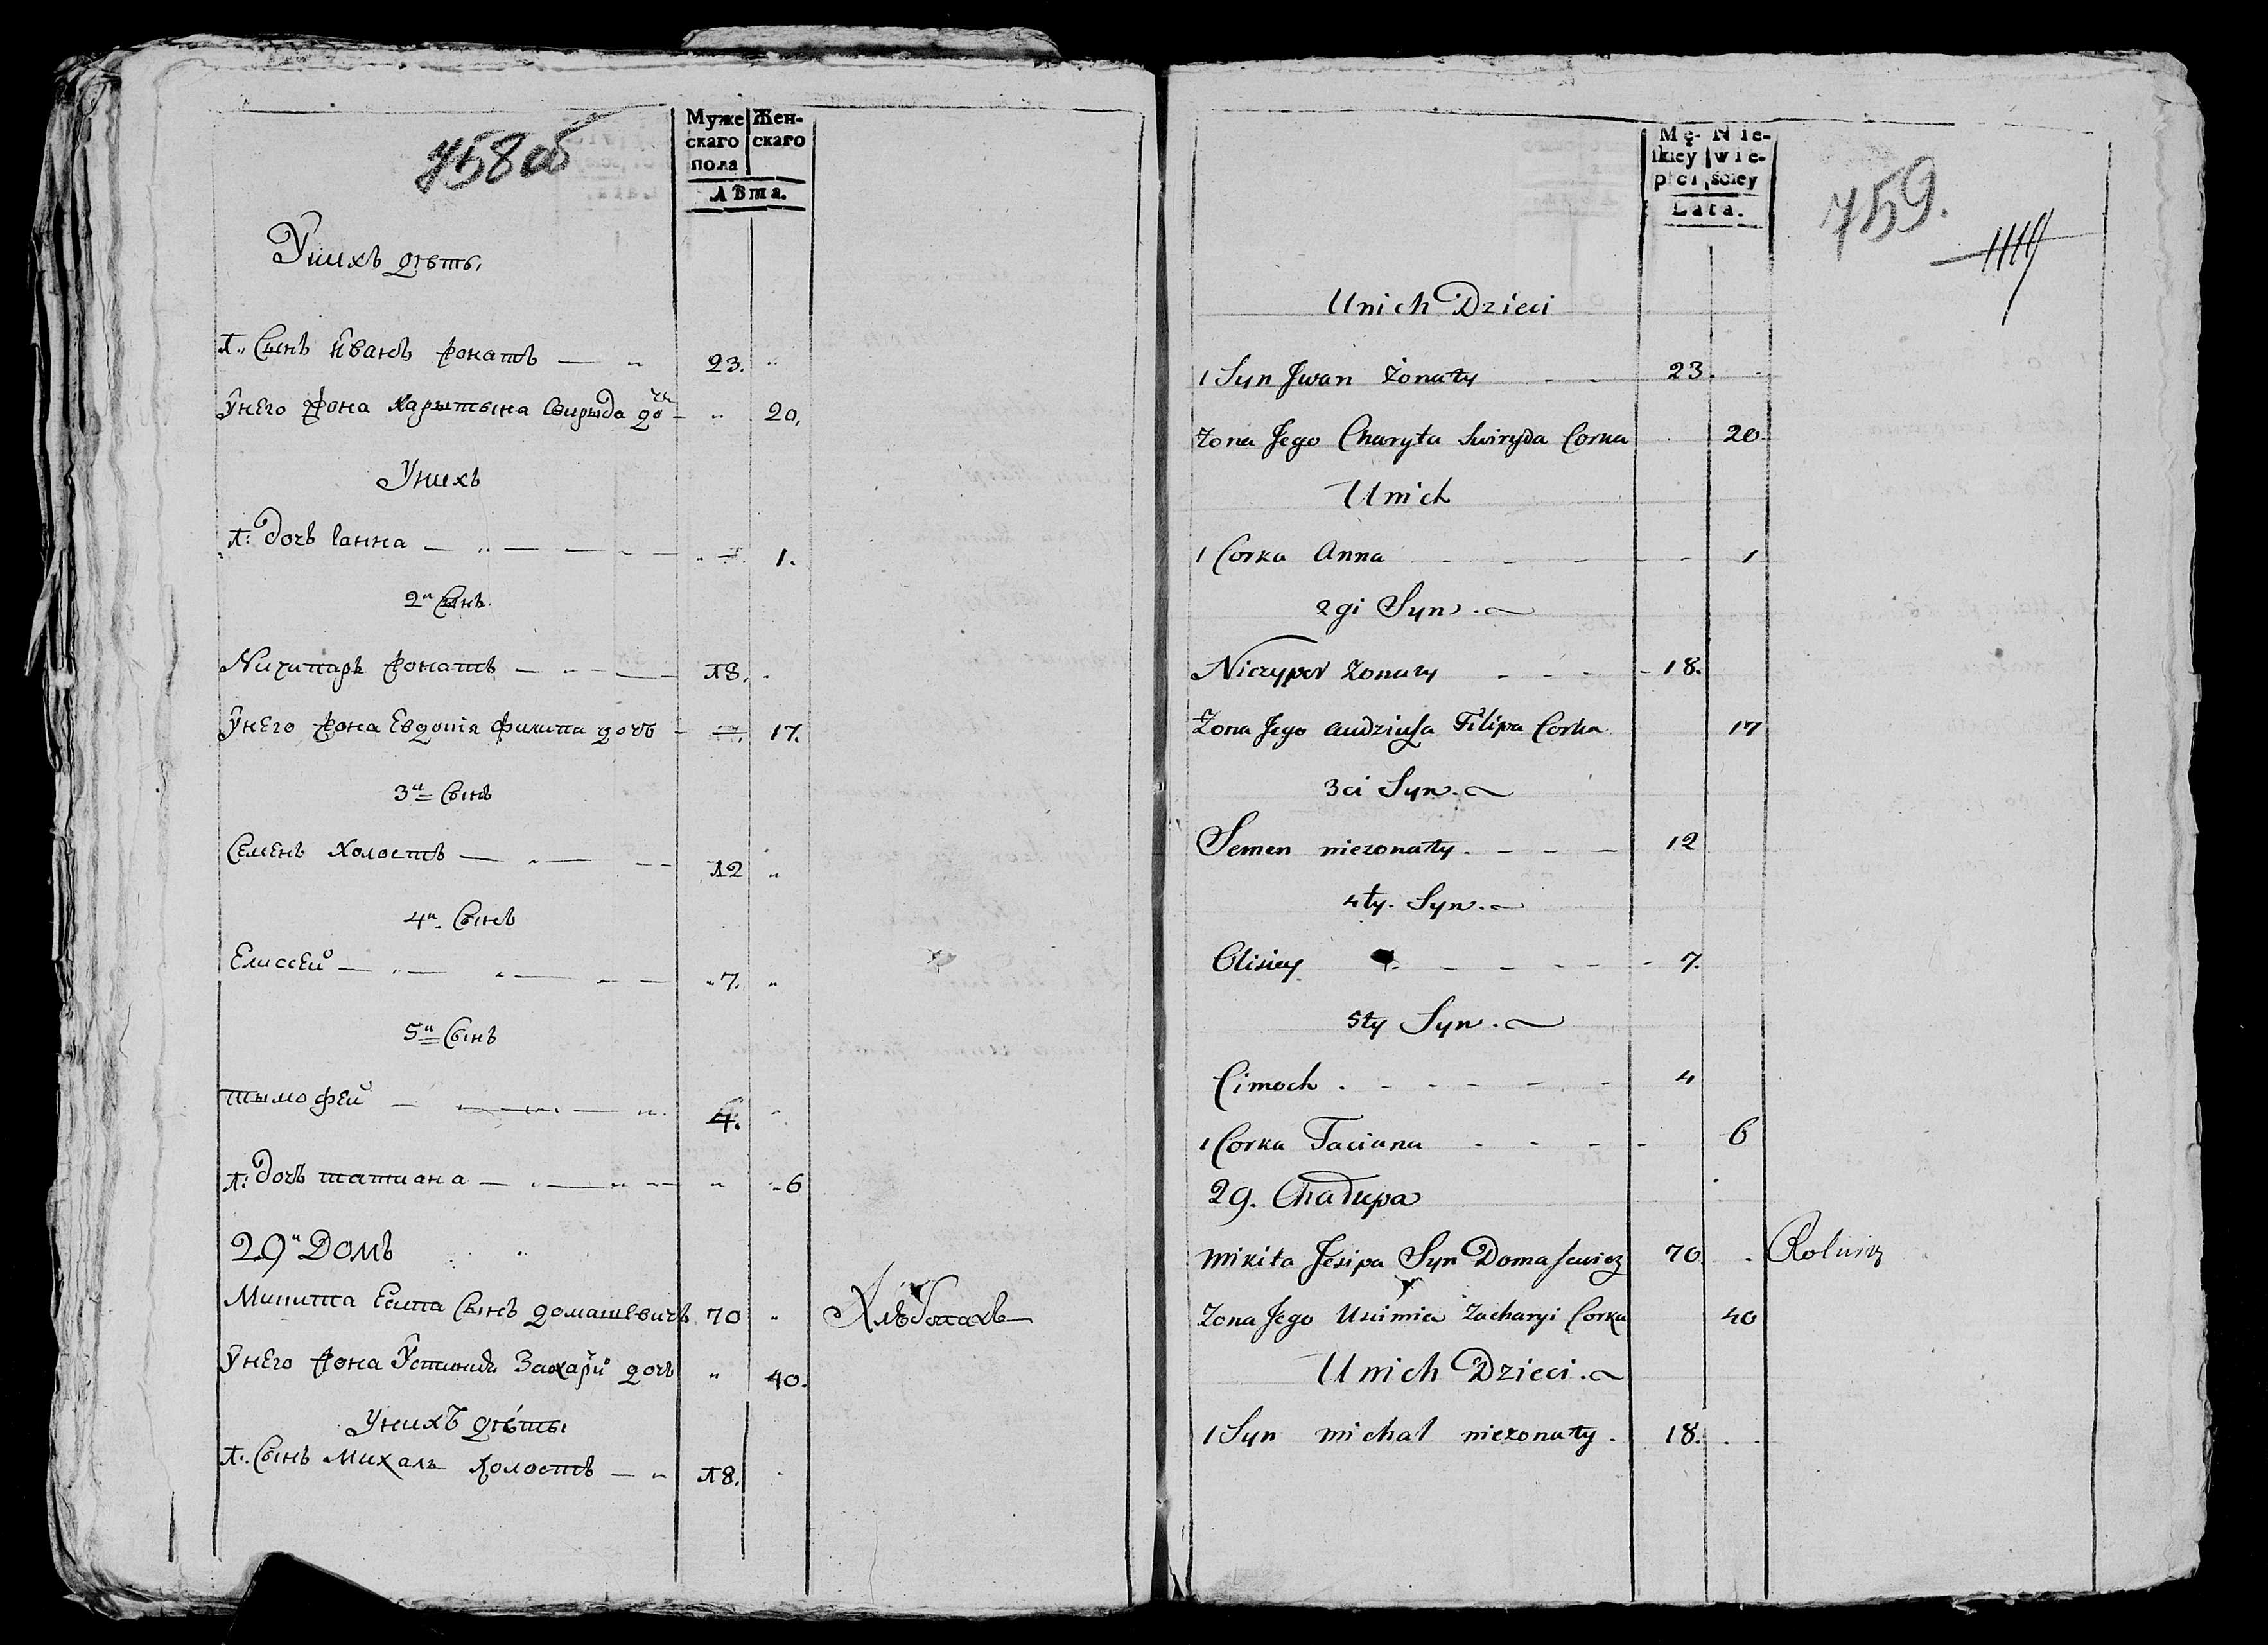 758 об
Муже
скаго
пола
Жен-
скаго
Лѣта.
Унихъ дѣты,
1.. Сынъ Иванъ жонатъ — „ 23. „
Унего жона Харытына Свирыда дочь — „ 20,
Унихъ
1: дочь Ганна — „ — — — 1.
2й Сынъ.
Ничипаръ жонатъ — 18. „
Унего жона Евдошія Филипа дочъ — 17.
3й Сынъ
Семенъ холостъ — „ — 12 „
4й Сынъ
Елиссей — „ — „ 7. „
5й Сынъ
тымофей — „ 4. „
1: дочъ татиана — „ — „ „ 6
29й Домъ
Микита Есипа Сынъ домашевичъ 70 „ Хлѣбпахъ
Унего жона Устиния Захарій дочъ „ 40.
Унихъ дѣты
1.. Сынъ Михаль холостъ — „ 18. „
Mę-
skiey
płci
Nie-
wie-
ściey
Lata.
759.
Unich Dzieci
1 Syn Jwan żonaty - - 23. -
Żona Jego Charyta Swiryda Corka 20.
Unich
1 Corka Anna - - - 1
2gi Syn.
Niczypor żonaty - - - 18.
Żona Jego Audziuſa Filipa Corka 17
3ci Syn.
Semen nieżonaty. - - - 12
4ty. Syn.
Olisiey - - - - 7.
5ty Syn.
Cimoch . - - - - 4
1 Corka Taciana - - - - 6
29. Chałupa
Mikita Jesipa Syn Domaſewicz 70. - Rolnik
Żona Jego Uscimia Zacharyi Corka 40
Unich Dzieci.
1 Syn Michał nieżonaty. 18. - -